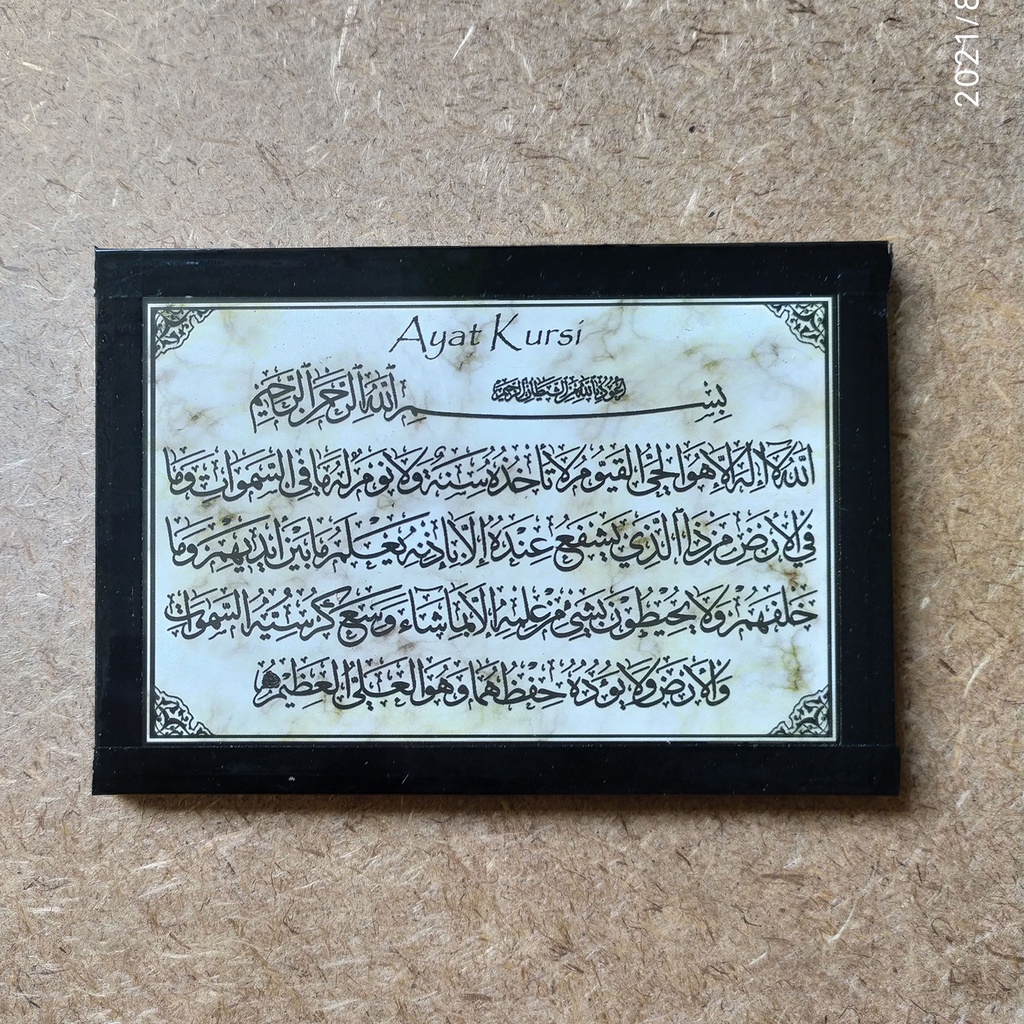 Ayat Kursi
أعوذ بالله من الشيطان الرجيم
بسم الله الرحمن الرحيم
الله لا إله إلا هو الحي القيوم لا تأخذه سنة ولا نوم له ما في السموات وما
في الأرض من ذا الذي يشفع عنده إلا بإذنه يعلم ما بين أيديهم وما
خلفهم ولا يحيطون بشيء من علمه إلا بما شاء وسع كرسيه السموات
والأرض ولا يؤده حفظهما وهو العلي العظيم
2021/8